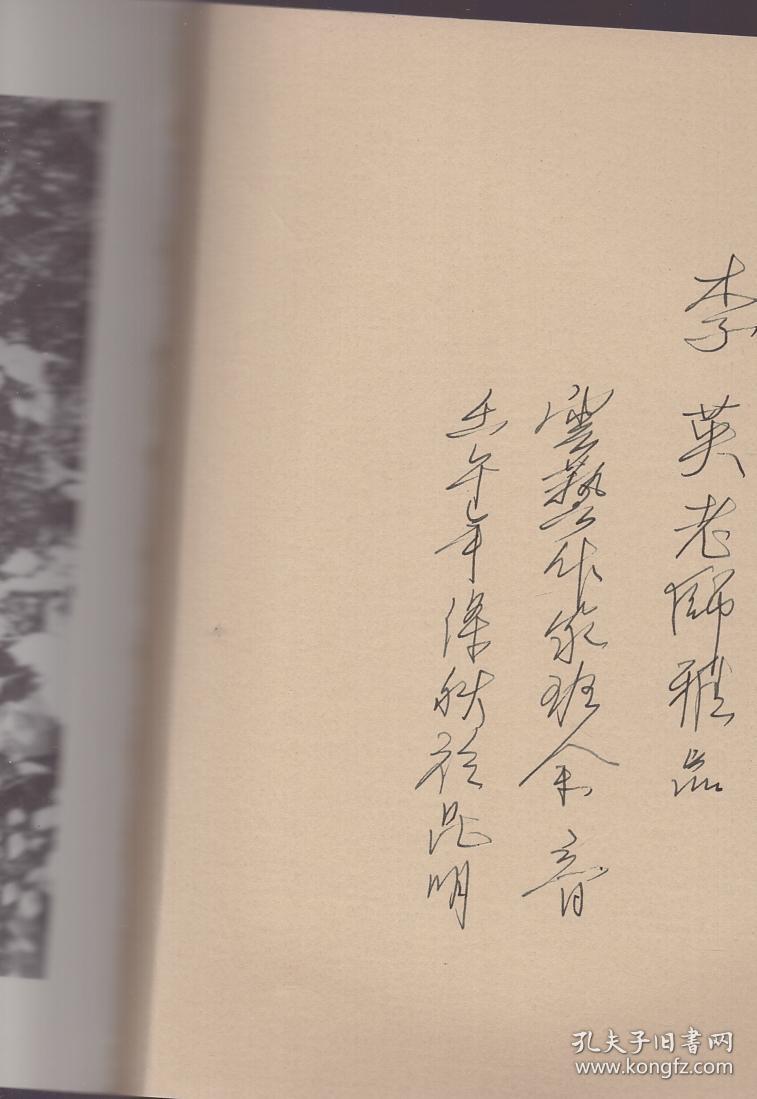 李英老師雅品
雲藝作家班余音
壬午年深秋於昆明
孔夫子旧書网
www.kongfz.com